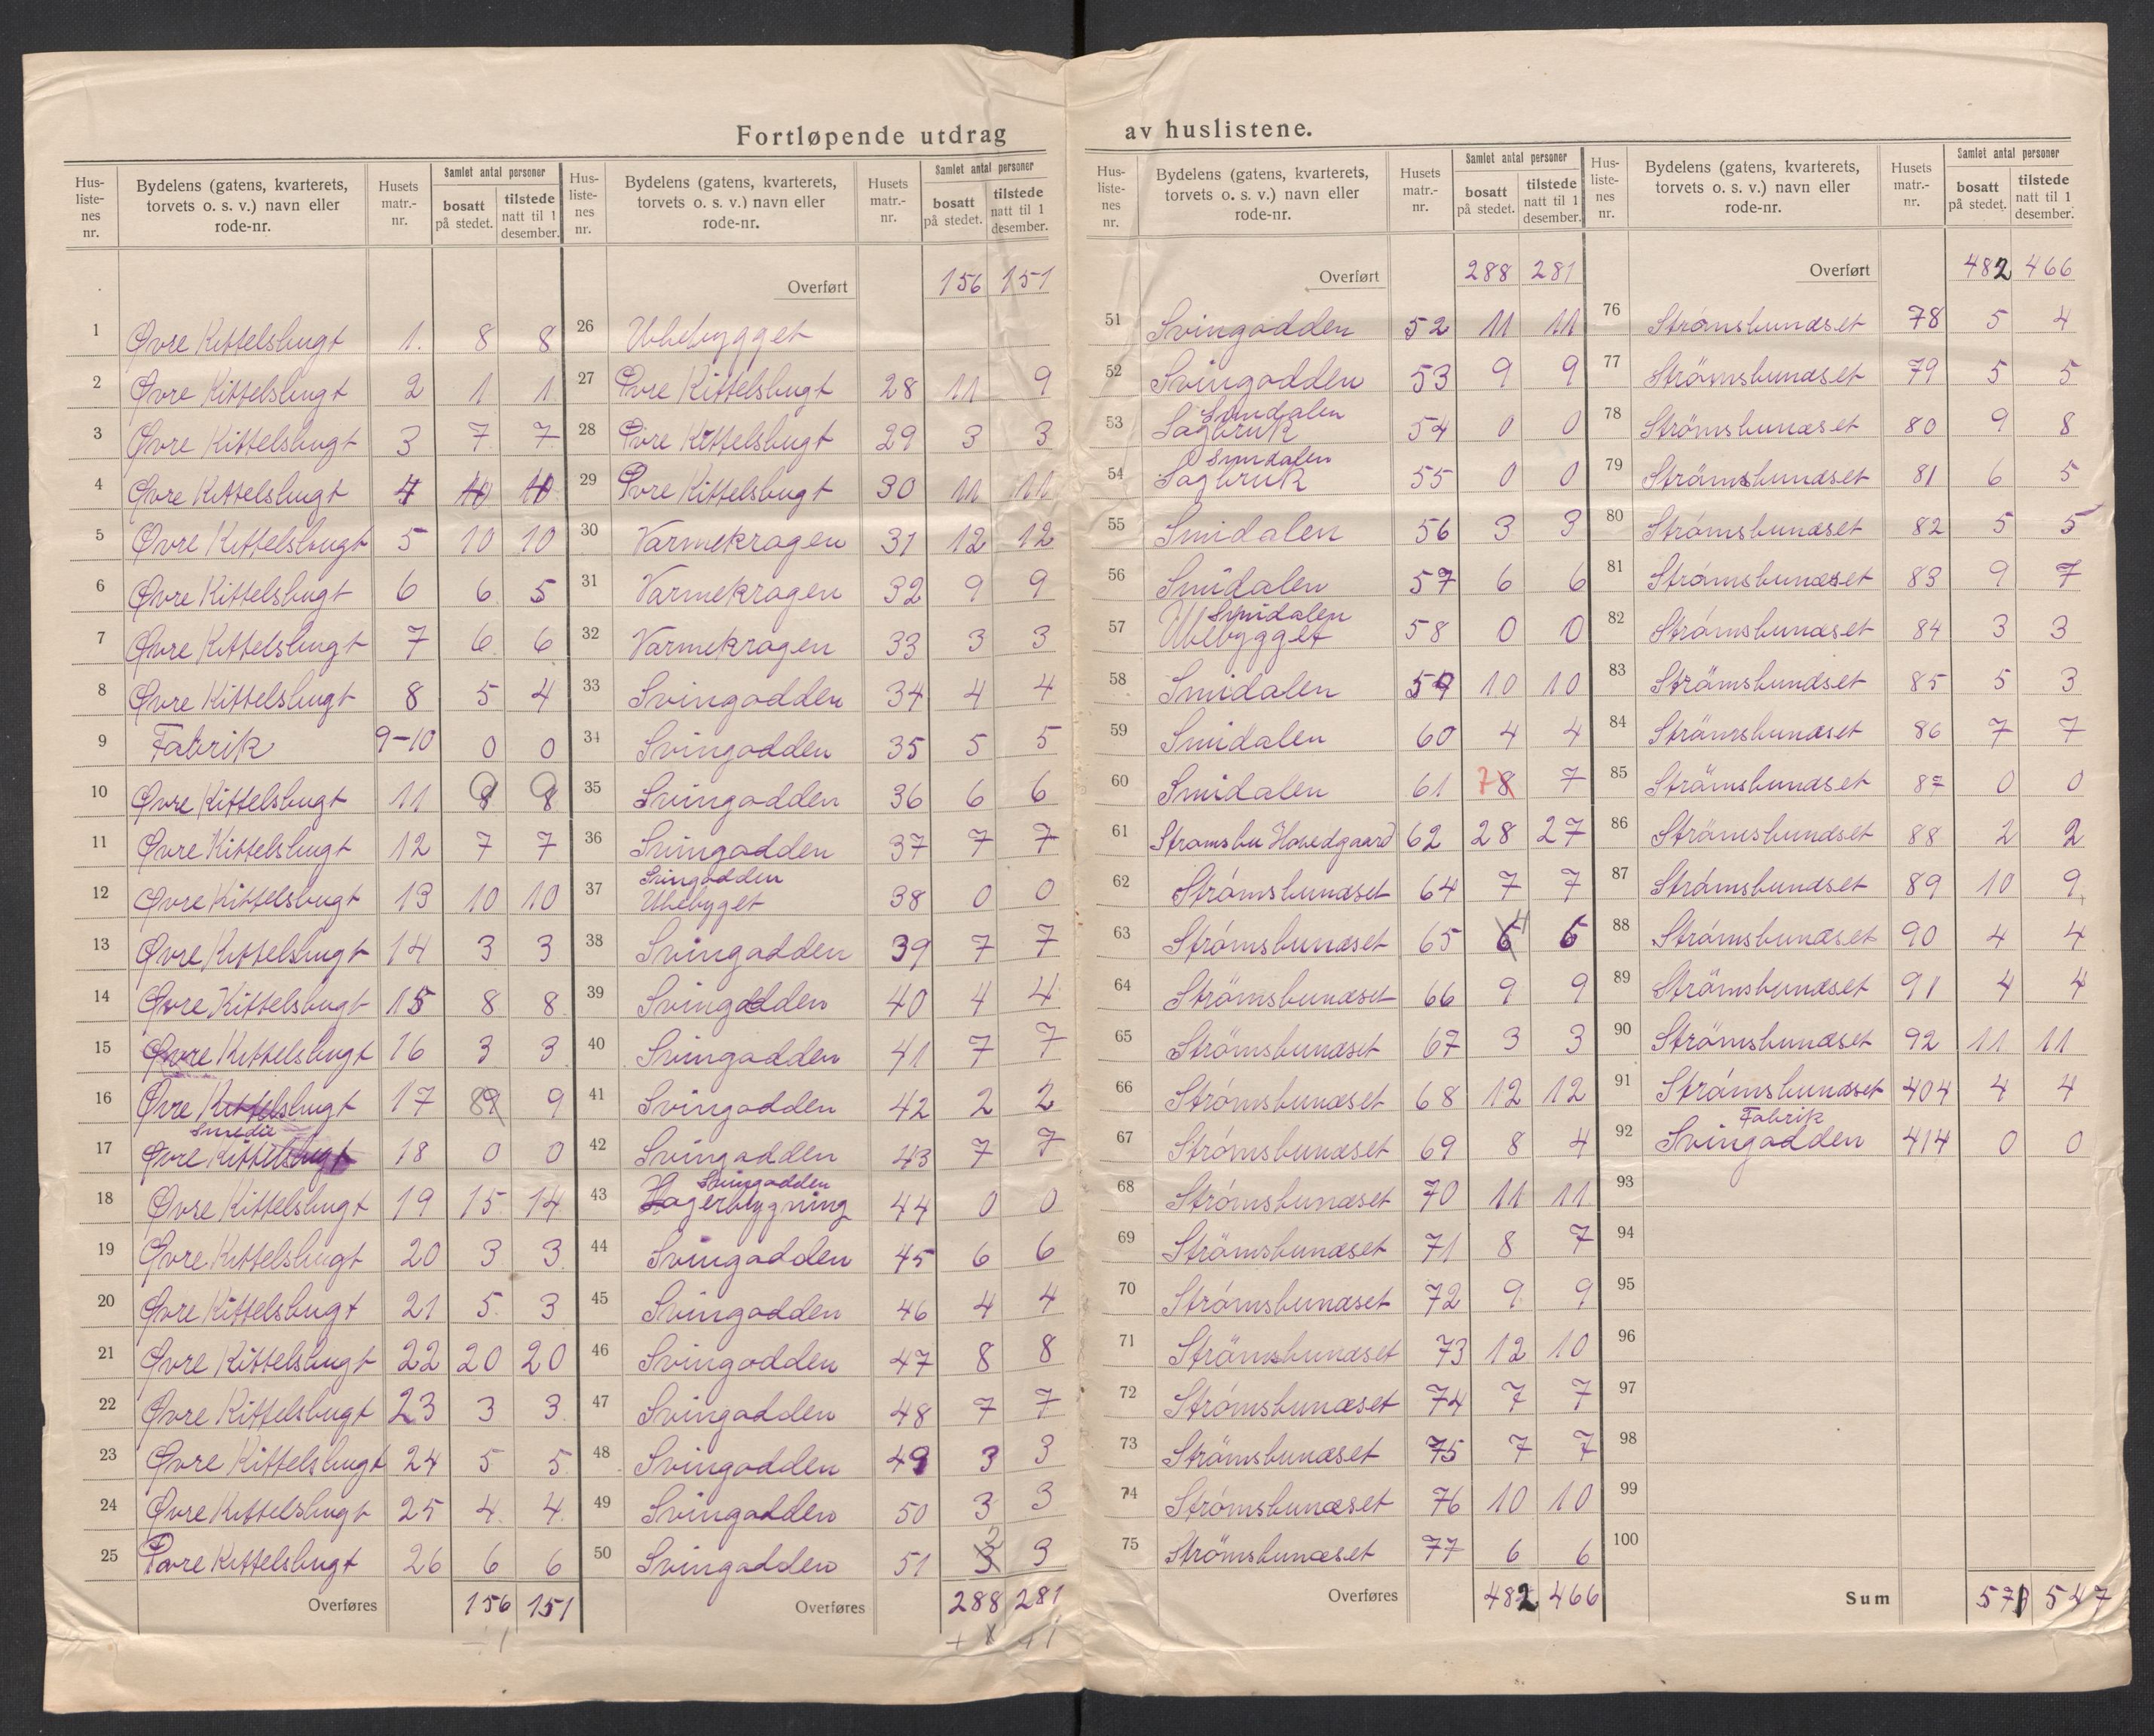 Fortløpende utdrag av huslistene.
Hus-listenes nr. | Bydelens (gatens, kvarterets, torvets o. s. v.) navn eller rode-nr. | Husets matr.-nr. | Samlet antal personer | bosatt på stedet. | tilstede natt til 1 desember.
1 Øvre Kittelsbugt 1. 8 8
2 Øvre Kittelsbugt 2 1 1
3 Øvre Kittelsbugt 3 7 7
4 Øvre Kittelsbugt 4
5 Øvre Kittelsbugt 5 10 10
6 Øvre Kittelsbugt 6 6 5
7 Øvre Kittelsbugt 7 6 6
8 Øvre Kittelsbugt 8 5 4
9 Fabrik 9-10 0 0
10 Øvre Kittelsbugt 11 9 8 9 8
11 Øvre Kittelsbugt 12 7 7
12 Øvre Kittelsbugt 13 10 10
13 Øvre Kittelsbugt 14 3 3
14 Øvre Kittelsbugt 15 8 8
15 Øvre Kittelsbugt 16 3 3
16 Øvre Kittelsbugt 17 89 9
17 Smedie
Øvre Kittelsbugt 18 0 0
18 Øvre Kittelsbugt 19 15 14
19 Øvre Kittelsbugt 20 3 3
20 Øvre Kittelsbugt 21 5 3
21 Øvre Kittelsbugt 22 20 20
22 Øvre Kittelsbugt 23 3 3
23 Øvre Kittelsbugt 24 5 5
24 Øvre Kittelsbugt 25 4 4
25 Øvre Kittelsbugt 26 6 6
Overføres 156 151
- 1
Hus-listenes nr. | Bydelens (gatens, kvarterets, torvets o. s. v.) navn eller rode-nr. | Husets matr.-nr. | Samlet antal personer | bosatt på stedet. | tilstede natt til 1 desember.
Overført 156 151
26 Ubebygget
27 Øvre Kittelsbugt 28 11 9
28 Øvre Kittelsbugt 29 3 3
29 Øvre Kittelsbugt 30 11 11
30 Varmekragen 31 12 12
31 Varmekragen 32 9 9
32 Varmekragen 33 3 3
33 Svingodden 34 4 4
34 Svingodden 35 5 5
35 Svingodden 36 6 6
36 Svingodden 37 7 7
37 Svingodden
Ubebyget 38 0 0
38 Svingodden 39 7 7
39 Svingodden 40 4 4
40 Svingodden 41 7 7
41 Svingodden 42 2 2
42 Svingodden 43 7 7
43 Svingodden
Lagerbygning 44 0 0
44 Svingodden 45 6 6
45 Svingodden 46 4 4
46 Svingodden 47 8 8
47 Svingodden 48 7 7
48 Svingodden 49 3 3
49 Svingodden 50 3 3
50 Svingodden 51 3 2 3
Overføres 288 281
+ 1 + 1
Hus-listenes nr. | Bydelens (gatens, kvarterets, torvets o. s. v.) navn eller rode-nr. | Husets matr.-nr. | Samlet antal personer | bosatt på stedet. | tilstede natt til 1 desember.
Overført 288 281
51 Svingodden 52 11 11
52 Svingodden 53 9 9
53 Smidalen
Sagbruk 54 0 0
54 Smidalen
Sagbruk 55 0 0
55 Smidalen 56 3 3
56 Smidalen 57 6 6
57 Smidalen
Ubebygget 58 0 0
58 Smidalen 59 10 10
59 Smidalen 60 4 4
60 Smidalen 61 7 8 7
61 Strømsbu Hovedgaard 62 28 27
62 Strømsbunæset 64 7 7
63 Strømsbunæset 65 6 4 6
64 Strømsbunæset 66 9 9
65 Strømsbunæset 67 3 3
66 Strømsbunæset 68 12 12
67 Strømsbunæset 69 8 4
68 Strømsbunæset 70 11 11
69 Strømsbunæset 71 8 7
70 Strømsbunæset 72 9 9
71 Strømsbunæset 73 12 10
72 Strømsbunæset 74 7 7
73 Strømsbunæset 75 7 7
74 Strømsbunæset 76 10 10
75 Strømsbunæset 77 6 6
Overføres 482 466
Hus-listenes nr. | Bydelens (gatens, kvarterets, torvets o. s. v.) navn eller rode-nr. | Husets matr.-nr. | Samlet antal personer | bosatt på stedet. | tilstede natt til 1 desember.
Overført 482 466
76 Strømsbunæset 78 5 4
77 Strømsbunæset 79 5 5
78 Strømsbunæset 80 9 8
79 Strømsbunæset 81 6 5
80 Strømsbunæset 82 5 5
81 Strømsbunæset 83 9 7
82 Strømsbunæset 84 3 3
83 Strømsbunæset 85 5 3
84 Strømsbunæset 86 7 7
85 Strømsbunæset 87 0 0
86 Strømsbunæset 88 2 2
87 Strømsbunæset 89 10 9
88 Strømsbunæset 90 4 4
89 Strømsbunæset 91 4 4
90 Strømsbunæset 92 11 11
91 Strømsbunæset 404 4 4
92 Fabrik
Svingodden 414 0 0
93
94
95
96
97
98
99
100
Sum 571 547